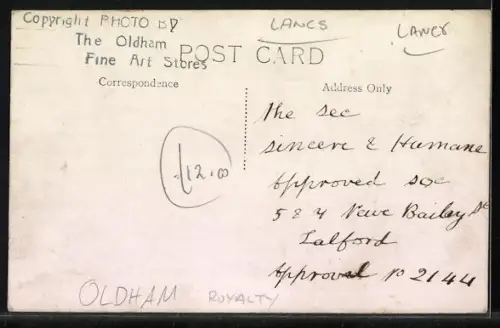 Copyright PHOTO BY
The Oldham
Fine Art Stores
LANCS
LANCS
POST CARD
Correspondence
Address Only
The Sec
Sincere & Humane
Approved Soc
5 & 7 New Bailey St
Salford
Approved No 2144
£12.00
OLDHAM
ROYALTY